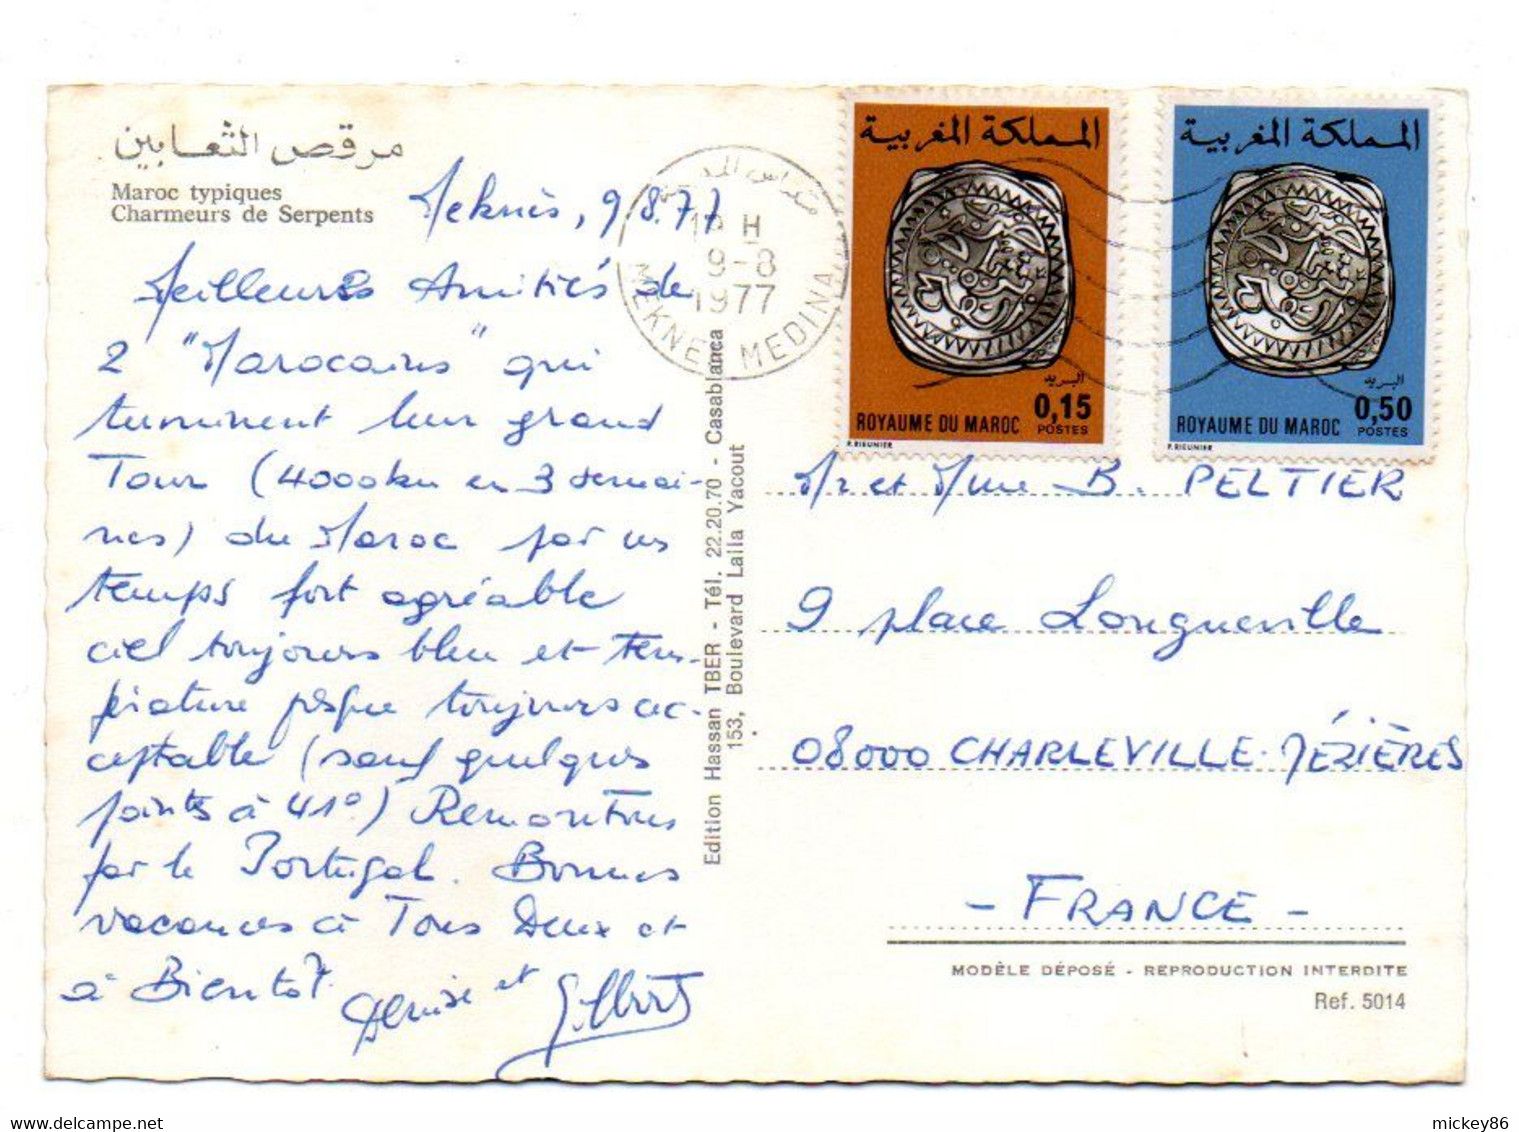 مرقص الثعابين
Maroc typiques
Charmeurs de Serpents
Meknès, 9.8.77
Meilleures Amitiés de
2 "Marocains" qui
terminent leur grand
Tour (4000km en 3 semai-
nes) du Maroc par un
temps fort agréable
ciel toujours bleu et tem-
pérature presque toujours ac-
ceptable (sauf quelques
points à 41°) Remontons
par le Portugal. Bonnes
vacances à Tous Deux et
à Bientôt.
Denise et Gilbert
Edition Hassan TBER - Tél. 22.20.70 - Casablanca
153, Boulevard Lalla Yacout
H
9-8
1977
MEKNES MEDINA
المملكة المغربية
البريد
0,15
ROYAUME DU MAROC POSTES
P. BIEUNIER
المملكة المغربية
البريد
0,50
ROYAUME DU MAROC POSTES
P. BIEUNIER
Mr et Mme B. PELTIER
9 place Longueville
08000 CHARLEVILLE-MÉZIÈRES
- FRANCE -
MODÈLE DÉPOSÉ - REPRODUCTION INTERDITE
Ref. 5014
mickey86